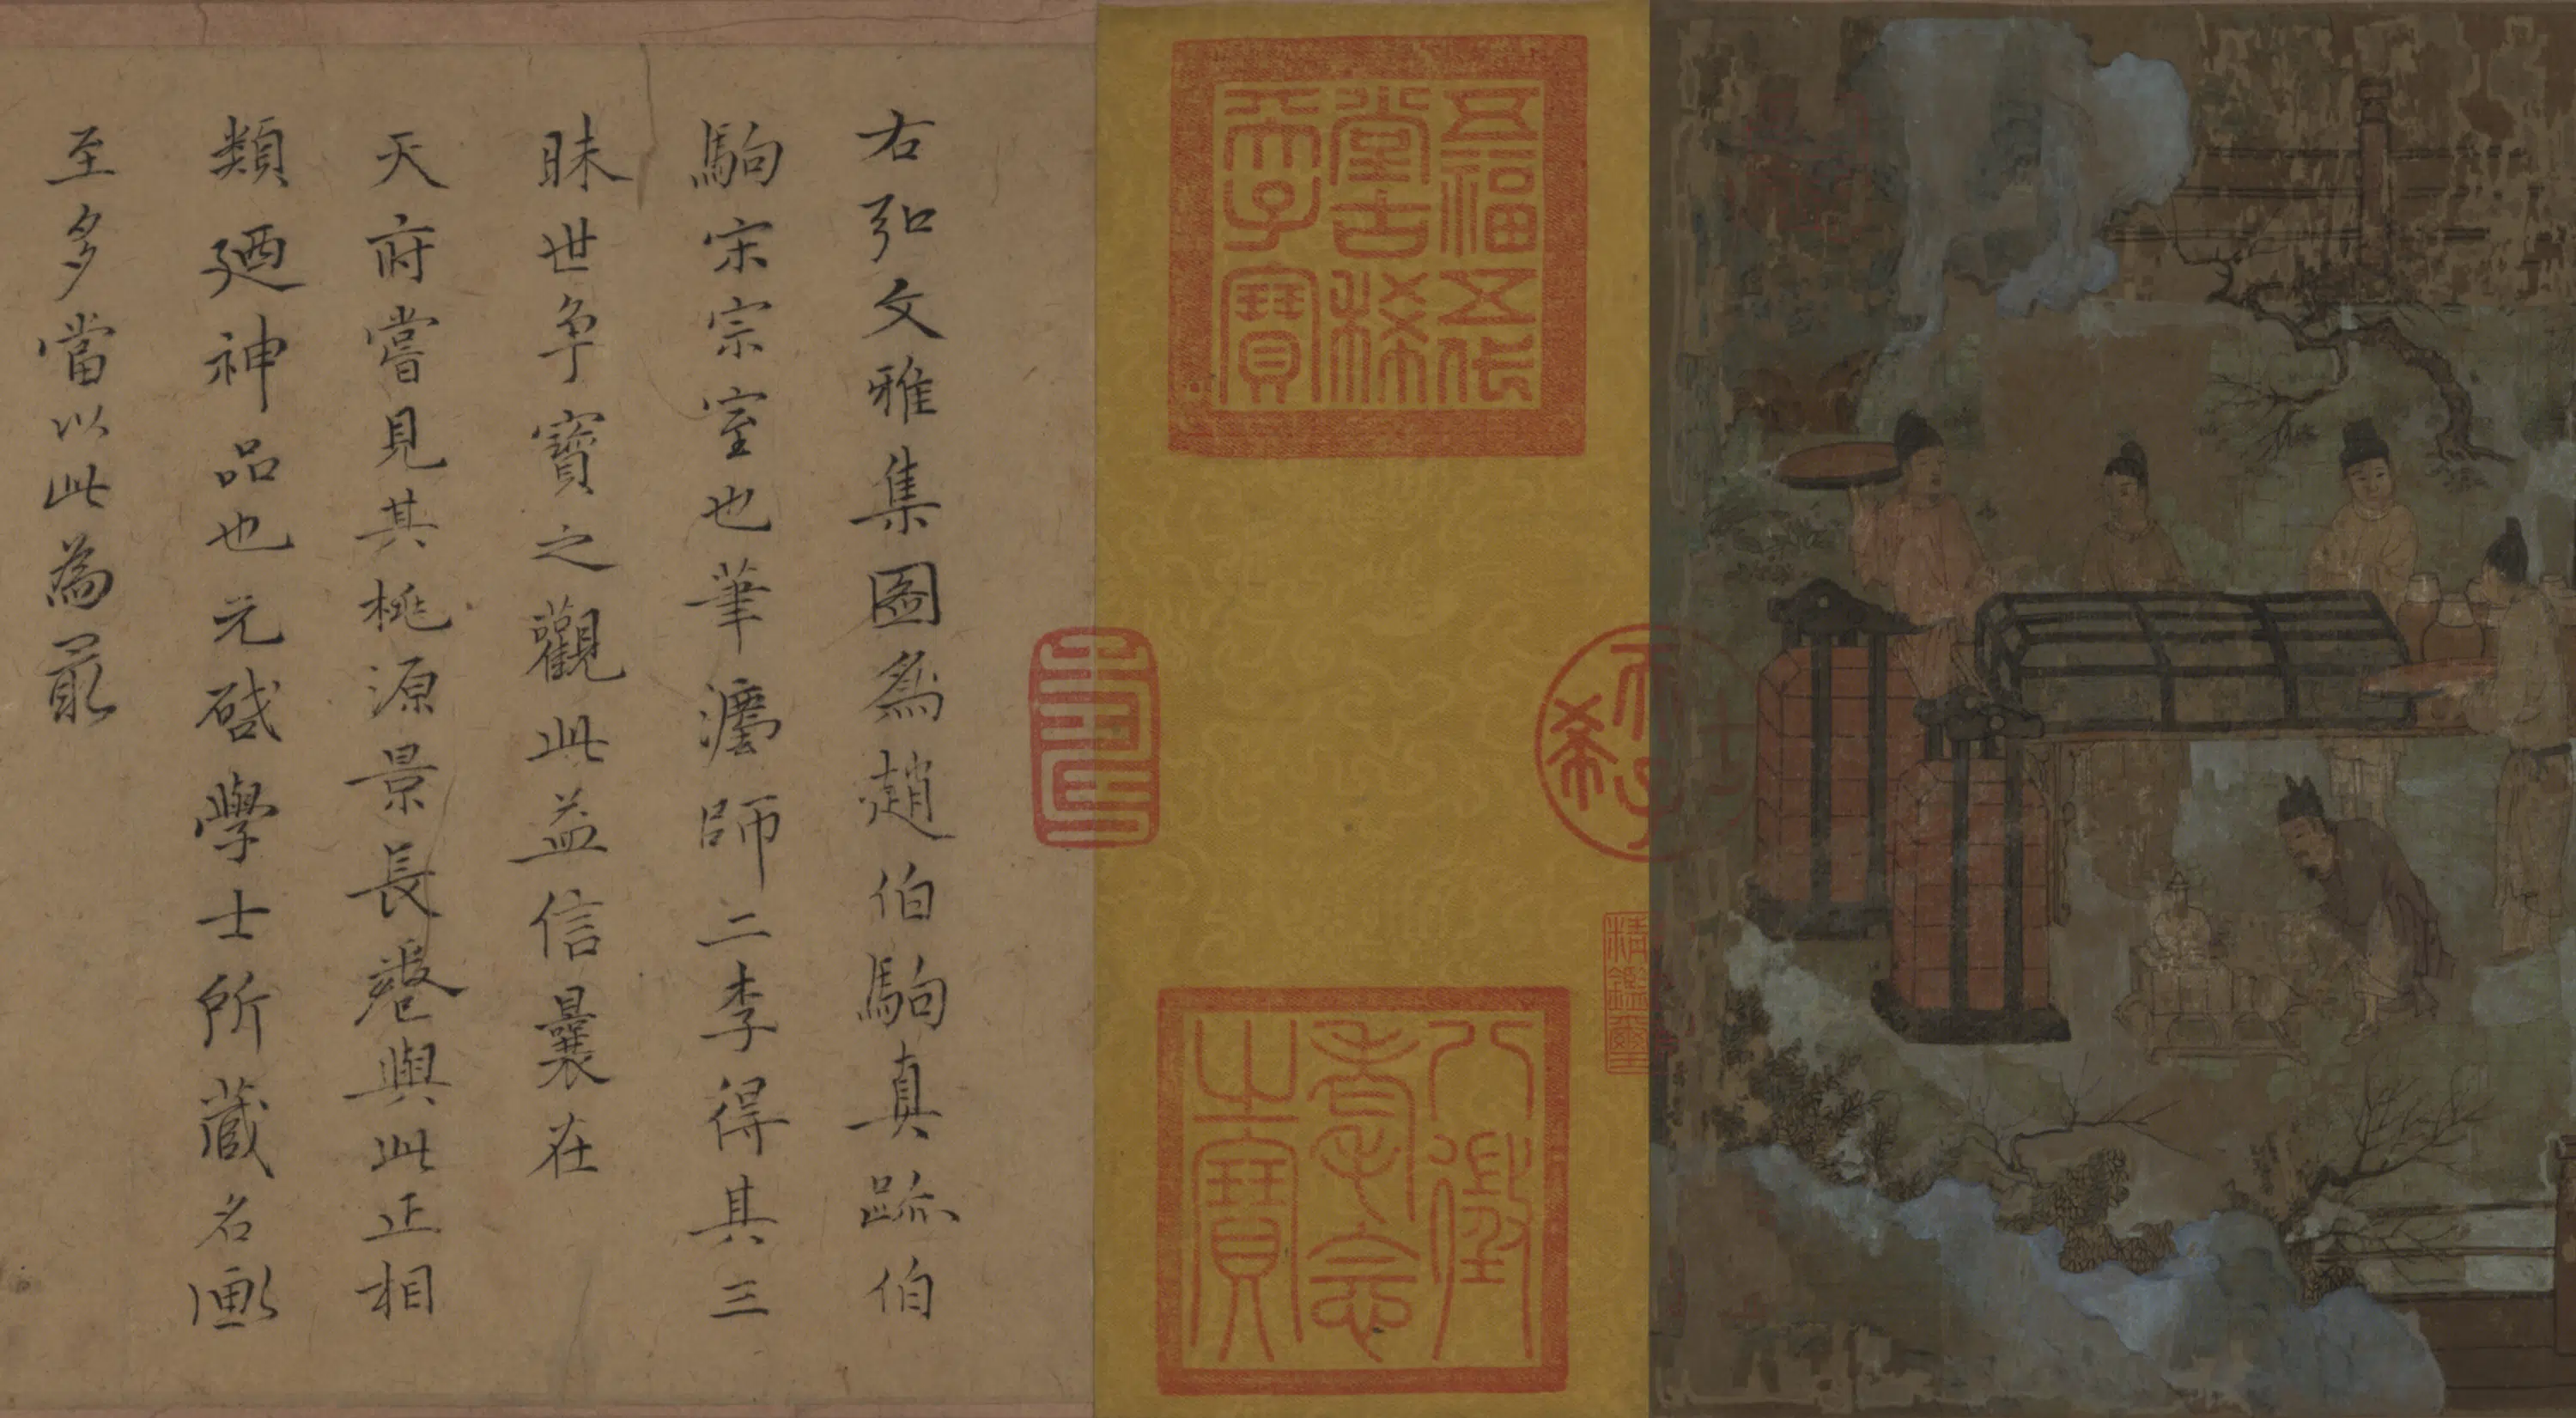 古希天子
精鑑璽
五福五代
堂古稀
天子寶
八徵
耄念
之寶
壽
右弘文雅集圖為趙伯駒真跡伯
駒宋宗室也筆灋師二李得其三
昧世爭寶之觀此益信曩在
天府嘗見其桃源景長卷與此正相
類廼神品也元啟學士所藏名畫
至多當以此為最